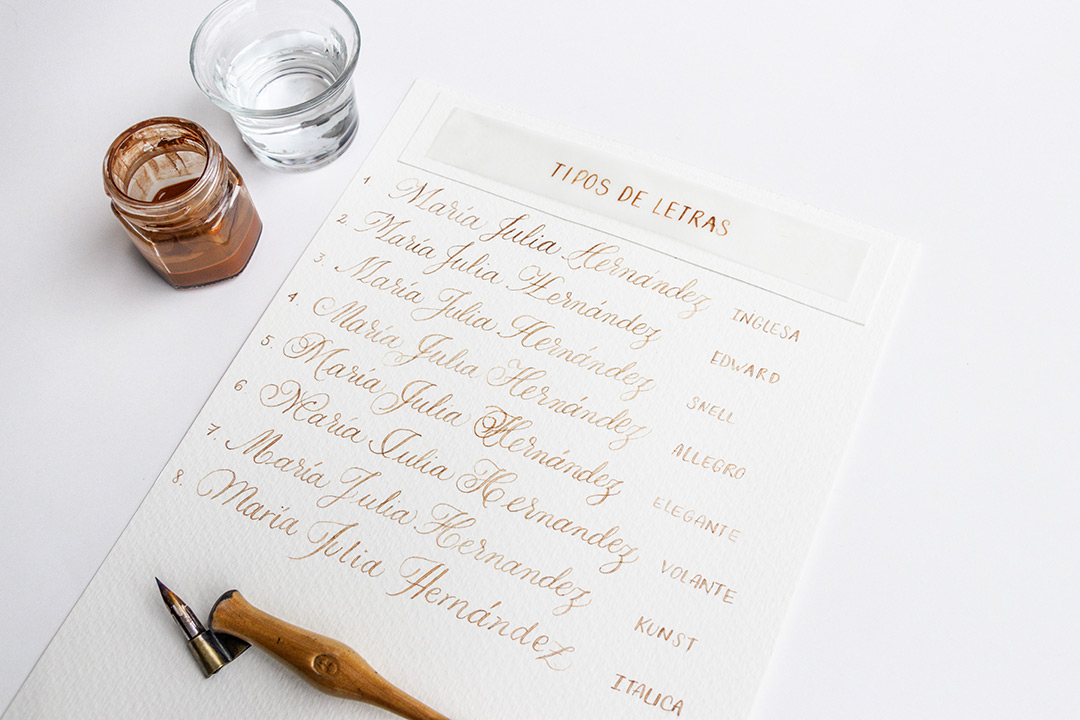 TIPOS DE LETRAS
1 María Julia Hernández INGLESA
2. María Julia Hernández EDWARD
3. María Julia Hernández SNELL
4. María Julia Hernández ALLEGRO
5. María Julia Hernández ELEGANTE
6 María Julia Hernandez VOLANTE
7. María Julia Hernandez KUNST
8. María Julia Hernández ITALICA